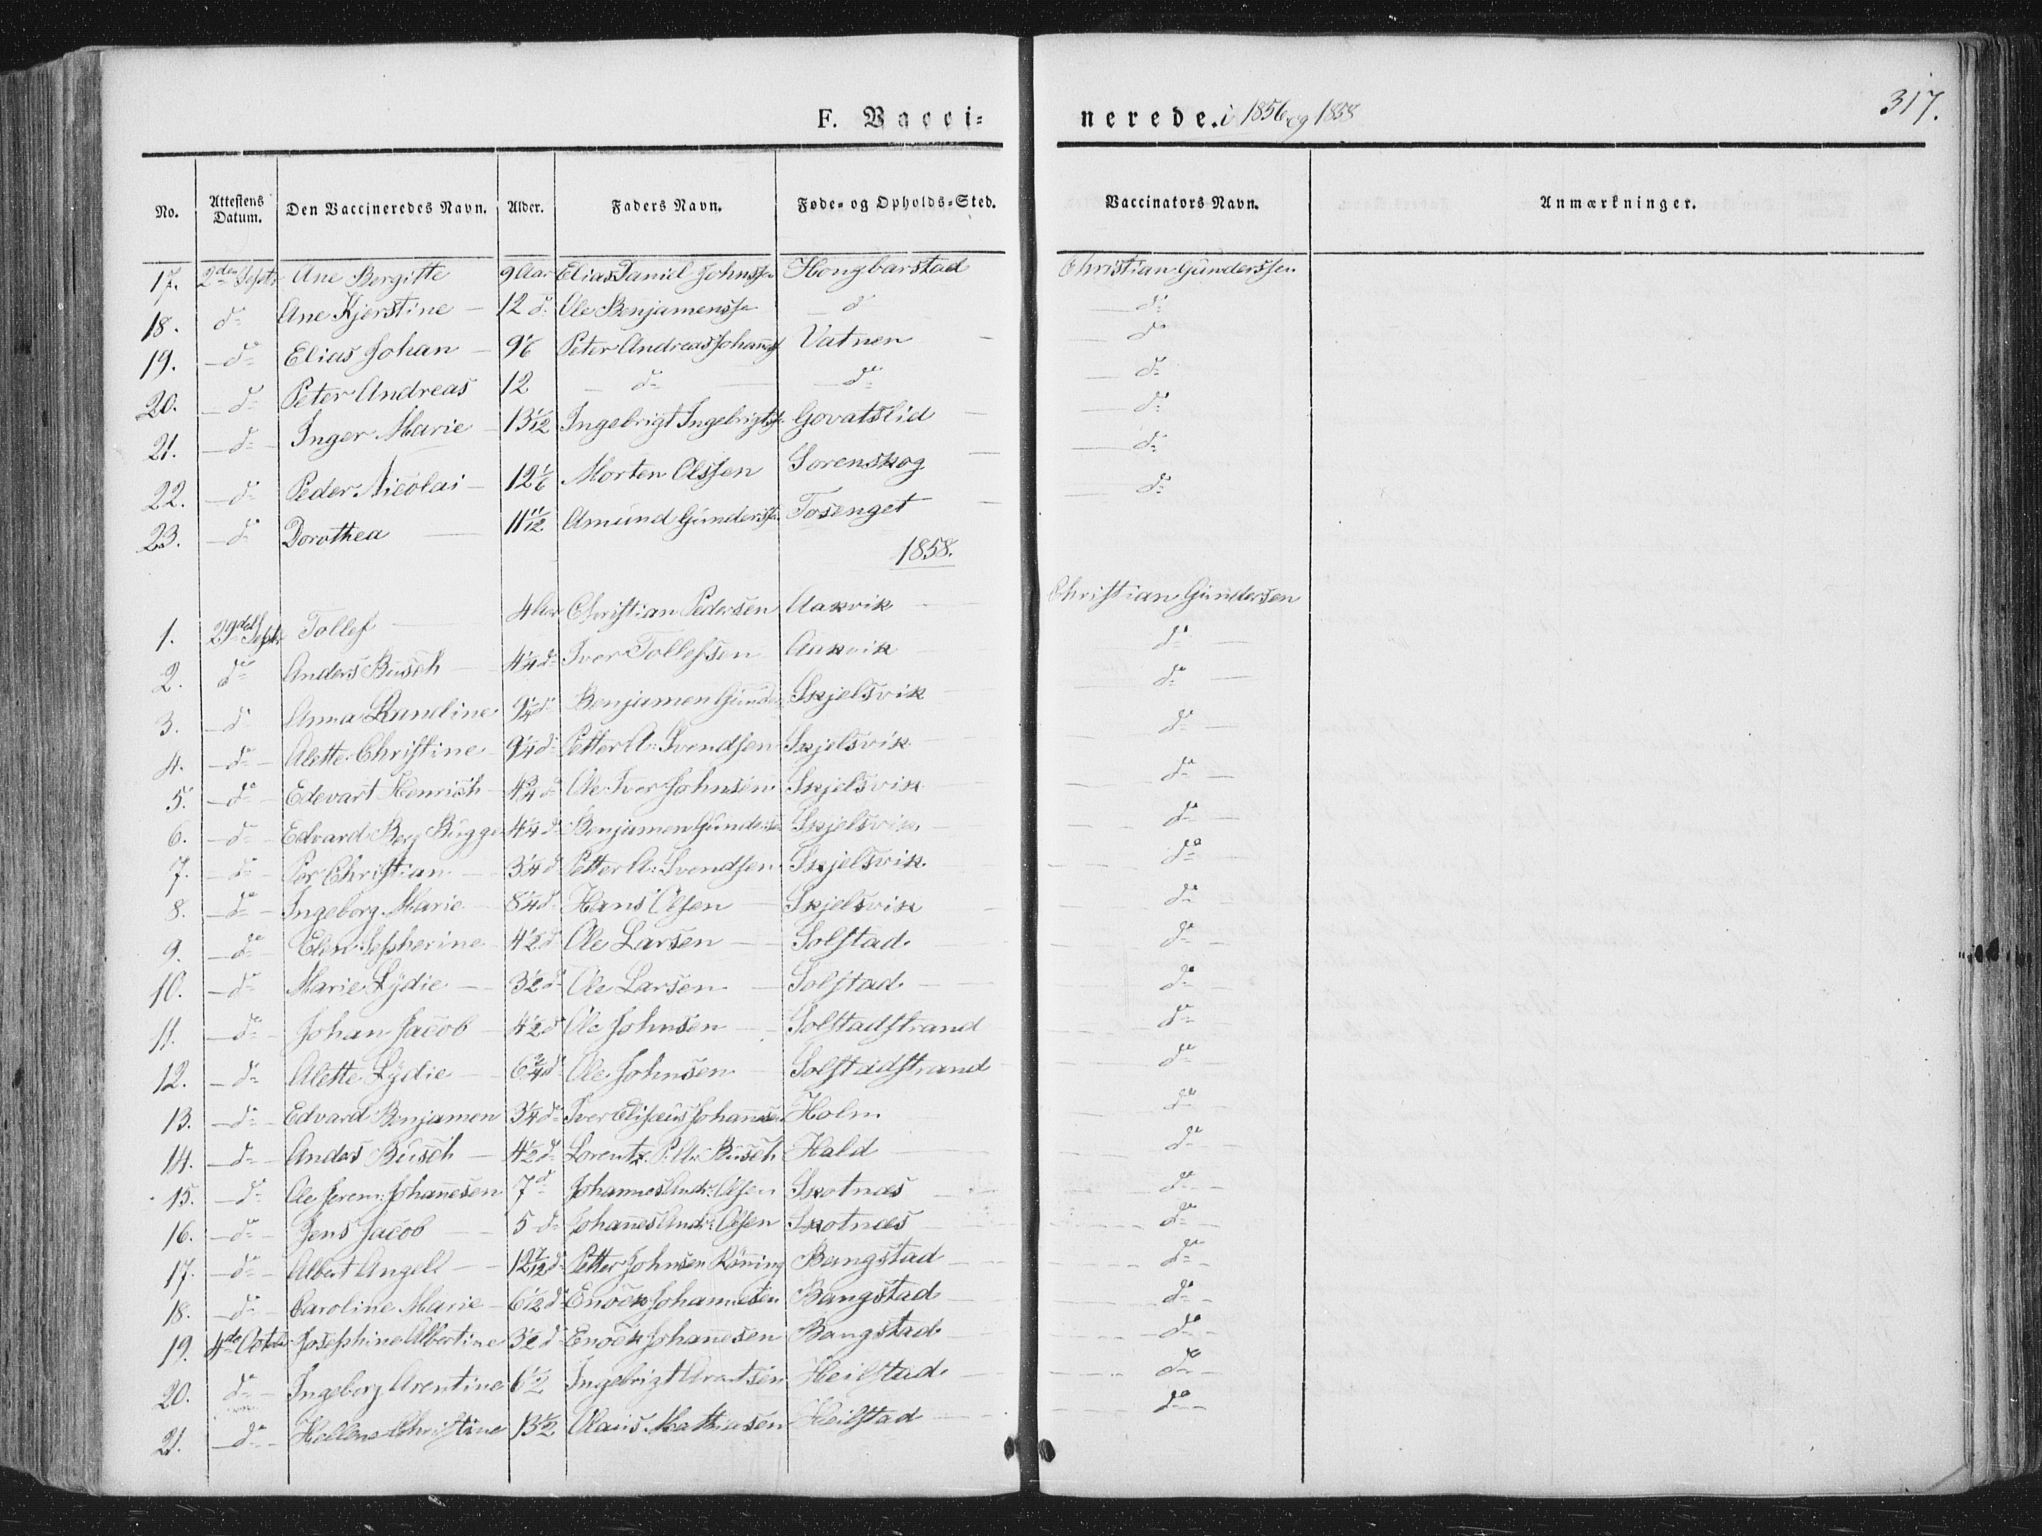 F. Vacci=
nerede. i 1856 og 1858
317.
No. Attestens Datum. Den Vaccineredes Navn. Alder. Faders Navn. Føde- og Opholds-Sted. Vaccinators Navn. Anmærkninger.
17. 2den Septr Ane Bergitte 9 Aar Elias Daniel Johnss. Hongbarstad Christian Gunderssen
18. do Ane Kjerstine 12 do Ole Benjamenss. do do
19. do Elias Johan 9 1/6 Peter Andreas Vatnen do
20. do Peter Andreas 12 do do do
21. do Inger Marie 13 1/12 Ingebrigt Govatslid do
22. do Peder Nicolai 12 1/6 Morten Olssen Sorenskog do
23. do Dorothea 11 11/12 Amund Gunderss. Tosenget do
1858.
1. 29de Septr Tollef 4 Aar Christian Pedersen Aakvik Christian Gundersen
2. do Anders Busch 4 1/4 do Iver Tollefsen Aakvik do
3. do Anna Randine 9 1/4 do Benjamen Skjelsvik do
4. do Alette Christine 9 1/4 do Petter A: Svendsen Skjelsvik do
5. do Edevart Henrich 4 3/4 do Ole Iver Johnsen Skjelsvik do
6. do Edvard Berg Bugge 4 1/4 do Benjamen Gundersen Skjelsvik do
7. do Per Christian 3 1/4 do Petter A: Svendsen Skjelsvik do
8. do Ingeborg Marie 8 1/4 do Hans Olsen Skjelsvik do
9. do Elen 4 1/2 do Ole Larsen Solstad do
10. do Marie Lydie 3 1/2 do Ole Larsen Solstad do
11. do Johan Jacob 4 1/2 do Ole Johnsen Solstadstrand do
12. do Alette Lydie 6 3/4 do Ole Johnsen Solstadstrand do
13. do Edvard Benjamen 3 1/4 do Iver Elisæus Johannesen Holm do
14. do Andas Busch 4 1/2 do Lorentz P. A: Busch Hald do
15. do Ole Jerem: Johannesen 7 do Johannes And: Olsen Skotnæs do
16. do Jens Jacob 5 do Johanes And: Olsen Skotnæs do
17. do Albert Angell 12 7/12 do Petter Johnsen Röning Bangstad do
18. do Caroline Marie 6 1/2 do Enock Johannesen Bangstad do
19. 4de Octobr Josephine Albertine 3 1/2 do Enock Johanesen Bangstad do
20. do Ingeborg Arentine 6 1/2 Ingebrigt Arentsen Heilstad do
21. do Hellene Christine 13 1/2 Olaus Mathiasen Heilstad do